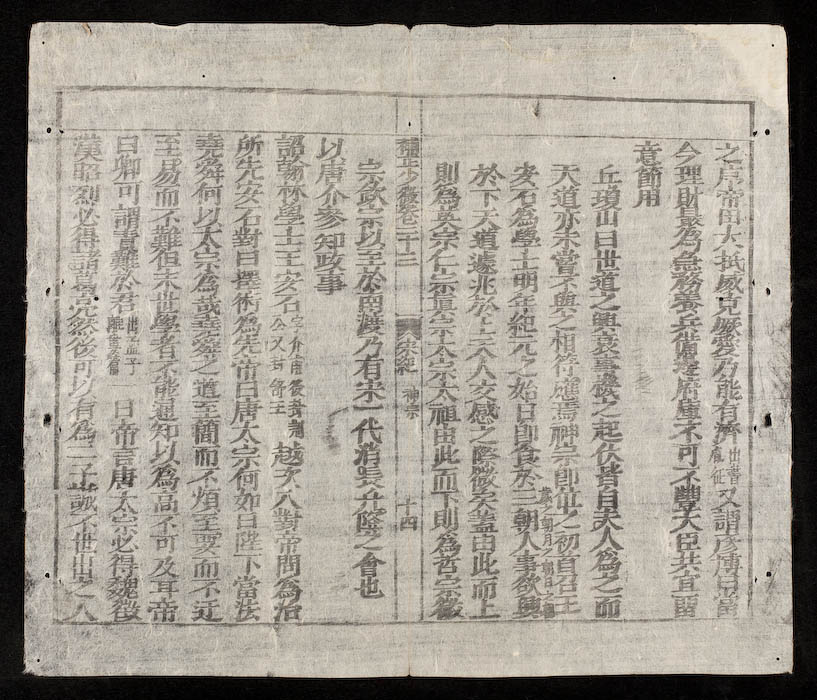 之序帝曰大抵威克厥愛乃能有濟出書胤征又謂彦博曰當
今理財最為急務養兵備邊府庫不可不豐大臣共宜留
意節用
丘瓊山曰世道之興衰事機之起伏皆自夫人為之而
天道亦未嘗不與之相符應焉神宗即位之初首召王
安石為學士明年紀元之始日即食於三朝歲之朝月之朝日之朝人事欲興
於下天道遽兆於上天人交感之際微矣蓋由此而上
則為英宗仁宗真宗太宗太祖由此而下則為哲宗徽
補正少微卷二十三 宋紀 神宗 十四
宗欽宗以至於南渡乃有宋一代消長升降之會也
以唐介參知政事
詔翰林學士王安石字介甫後封荊公又封舒王越次入對帝問為治
所先安石對曰擇術為先帝曰唐太宗何如曰陛下當法
堯舜何以太宗為哉堯舜之道至簡而不煩至要而不迂
至易而不難但末世學者不能通知以為高不可及耳帝
曰卿可謂責難於君出孟子離婁篇一日帝言唐太宗必得魏徵
漢昭烈必得諸葛亮然後可以有為二子誠不世出之人